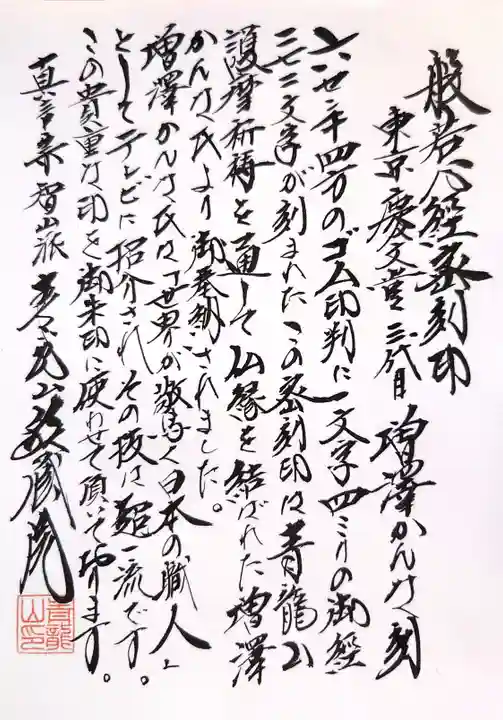 般若心経密刻印
東京慶文堂三代目 増澤かんな刻
六・七センチ四方のゴム印判に一文字四ミリの御経
文字が刻まれたこの密刻印は青龍山
護摩祈祷を通して仏縁を結ばれた増澤
かんな氏より御奉納されました。
増澤かんな氏は「世界が驚く日本の職人」
としてテレビに招介され その技は超一流です。
この貴重な印を御朱印に使わせて頂いております。
真言宗智山派 蔵院
青龍山印